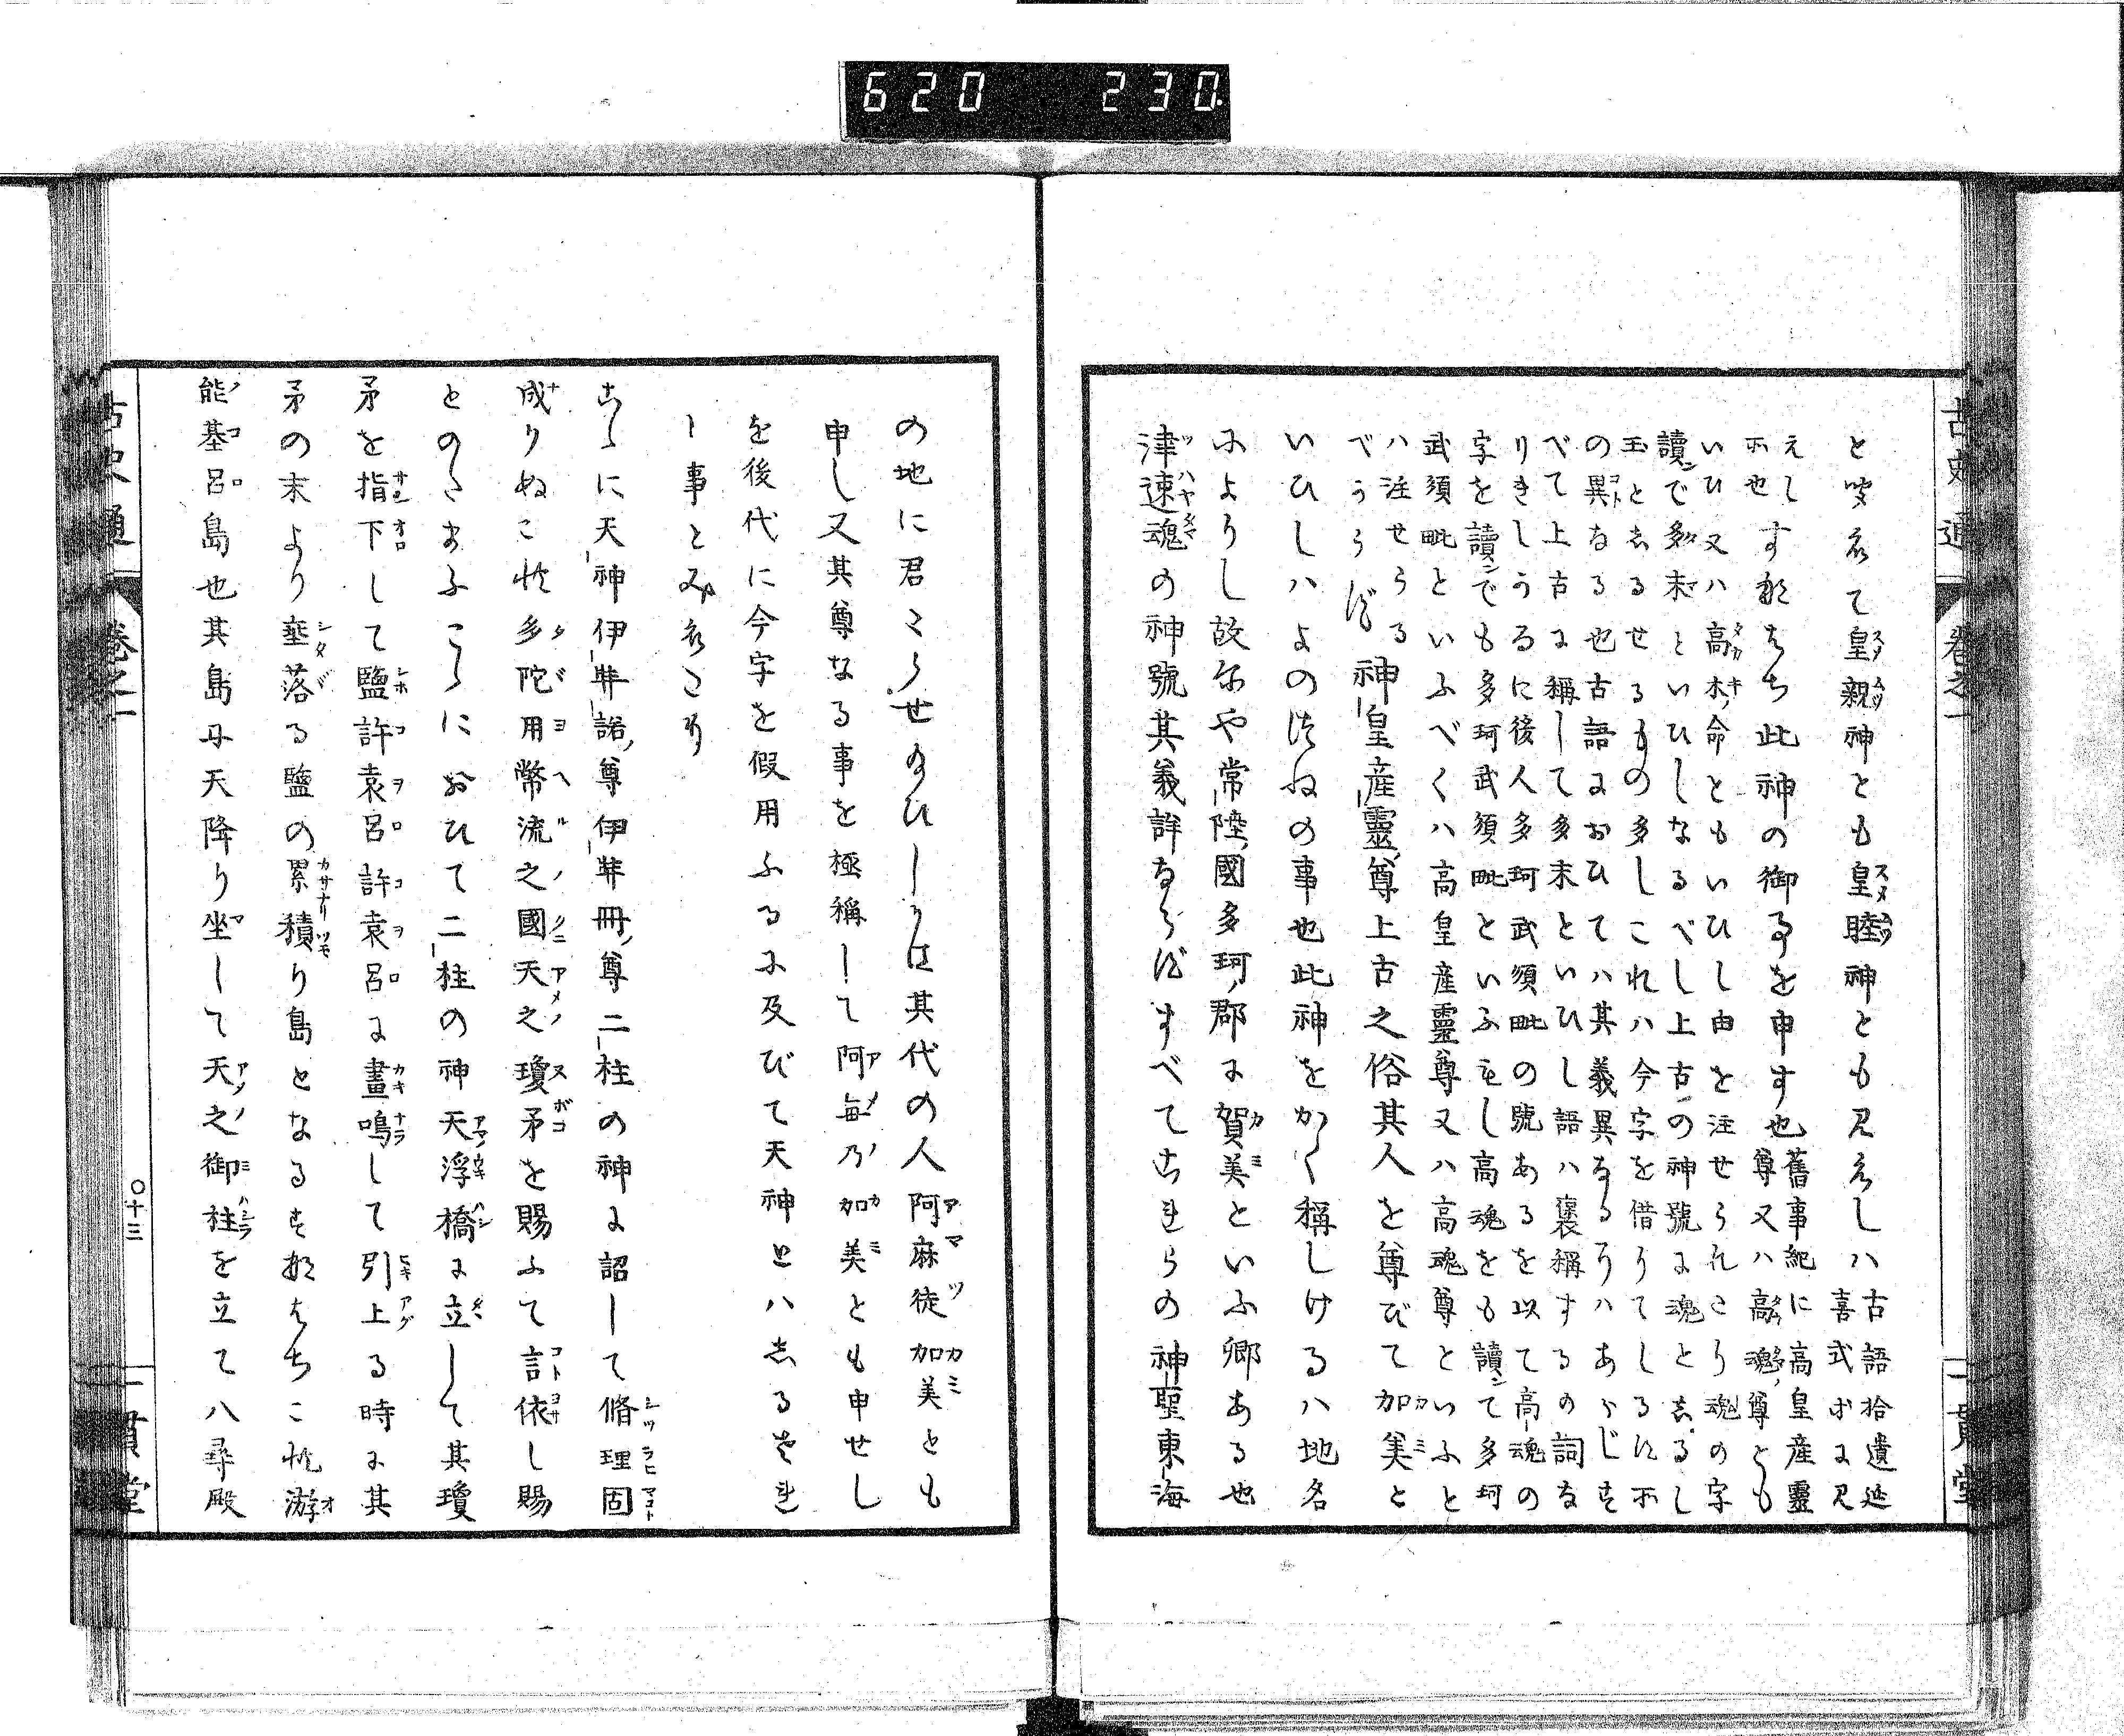 620 230.
古史通 卷之一 一貫堂
と咲えて皇親神とも皇睦神とも見えしハ古語拾遺延
喜式等に見
えしす形はち此神の御事を申す也舊事紀に高皇産靈
尊又ハ高魂尊とも
いひ又ハ高木命ともいひし由を注せられたり魂の字
讀で多末といひしなるべし上古の神號に魂としるし
玉としるせるもの多しこれハ今字を借りてしるす所
の異なる也古語においてハ其義異なるにハあらじす
べて上古に稱して多末といひし語ハ褒稱するの詞な
りきしかるに後人多珂武須毗の號あるを以て高魂の
字を讀でも多珂武須毗といふもし高魂をも讀て多珂
武須毗といふべくハ高皇産靈尊又ハ高魂尊といふと
ハ注せらる
べからず神皇産靈尊上古之俗其人を尊びて加美と
いひしハよのつねの事也此神をかく稱しけるハ地名
によりし故にや常陸國多珂郡に賀美といふ郷ある也
津速魂の神號其義詳ならずすべてこれらの神聖東海
の地に君たらせ給ひしかは其代の人阿麻徒加美とも
申し又其尊なる事を極稱して阿毎乃加美とも申せし
を後代に今字を假用ふるに及びて天神とハしるされ
し事とみえたり
こゝに天神伊弉諾尊伊弉冊尊二柱の神に詔して脩理固
成りぬこれ多陀用幣流之國天之瓊矛を賜ふて言依し賜
とのたまふこゝにおひて二柱の神天浮橋に立して其瓊
矛を指下して鹽許袁呂許袁呂に畫鳴して引上る時に其
矛の末より埀落る鹽の累積り島となるすなはちこれ淤
能基呂島也其島に天降り坐して天之御柱を立て八尋殿
古史通 卷之一 〇十三 一貫堂